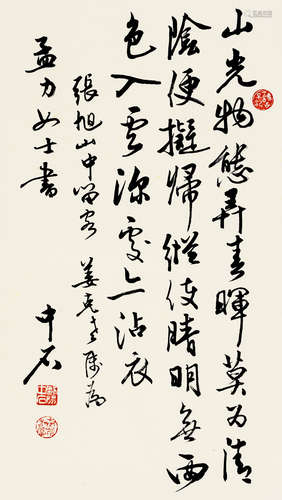 山光物態弄春暉莫为清
陰便擬歸縱使晴明無雨
色入雲深處亦沾衣
張旭山中留客 姜克 属为
孟力女士書
中石